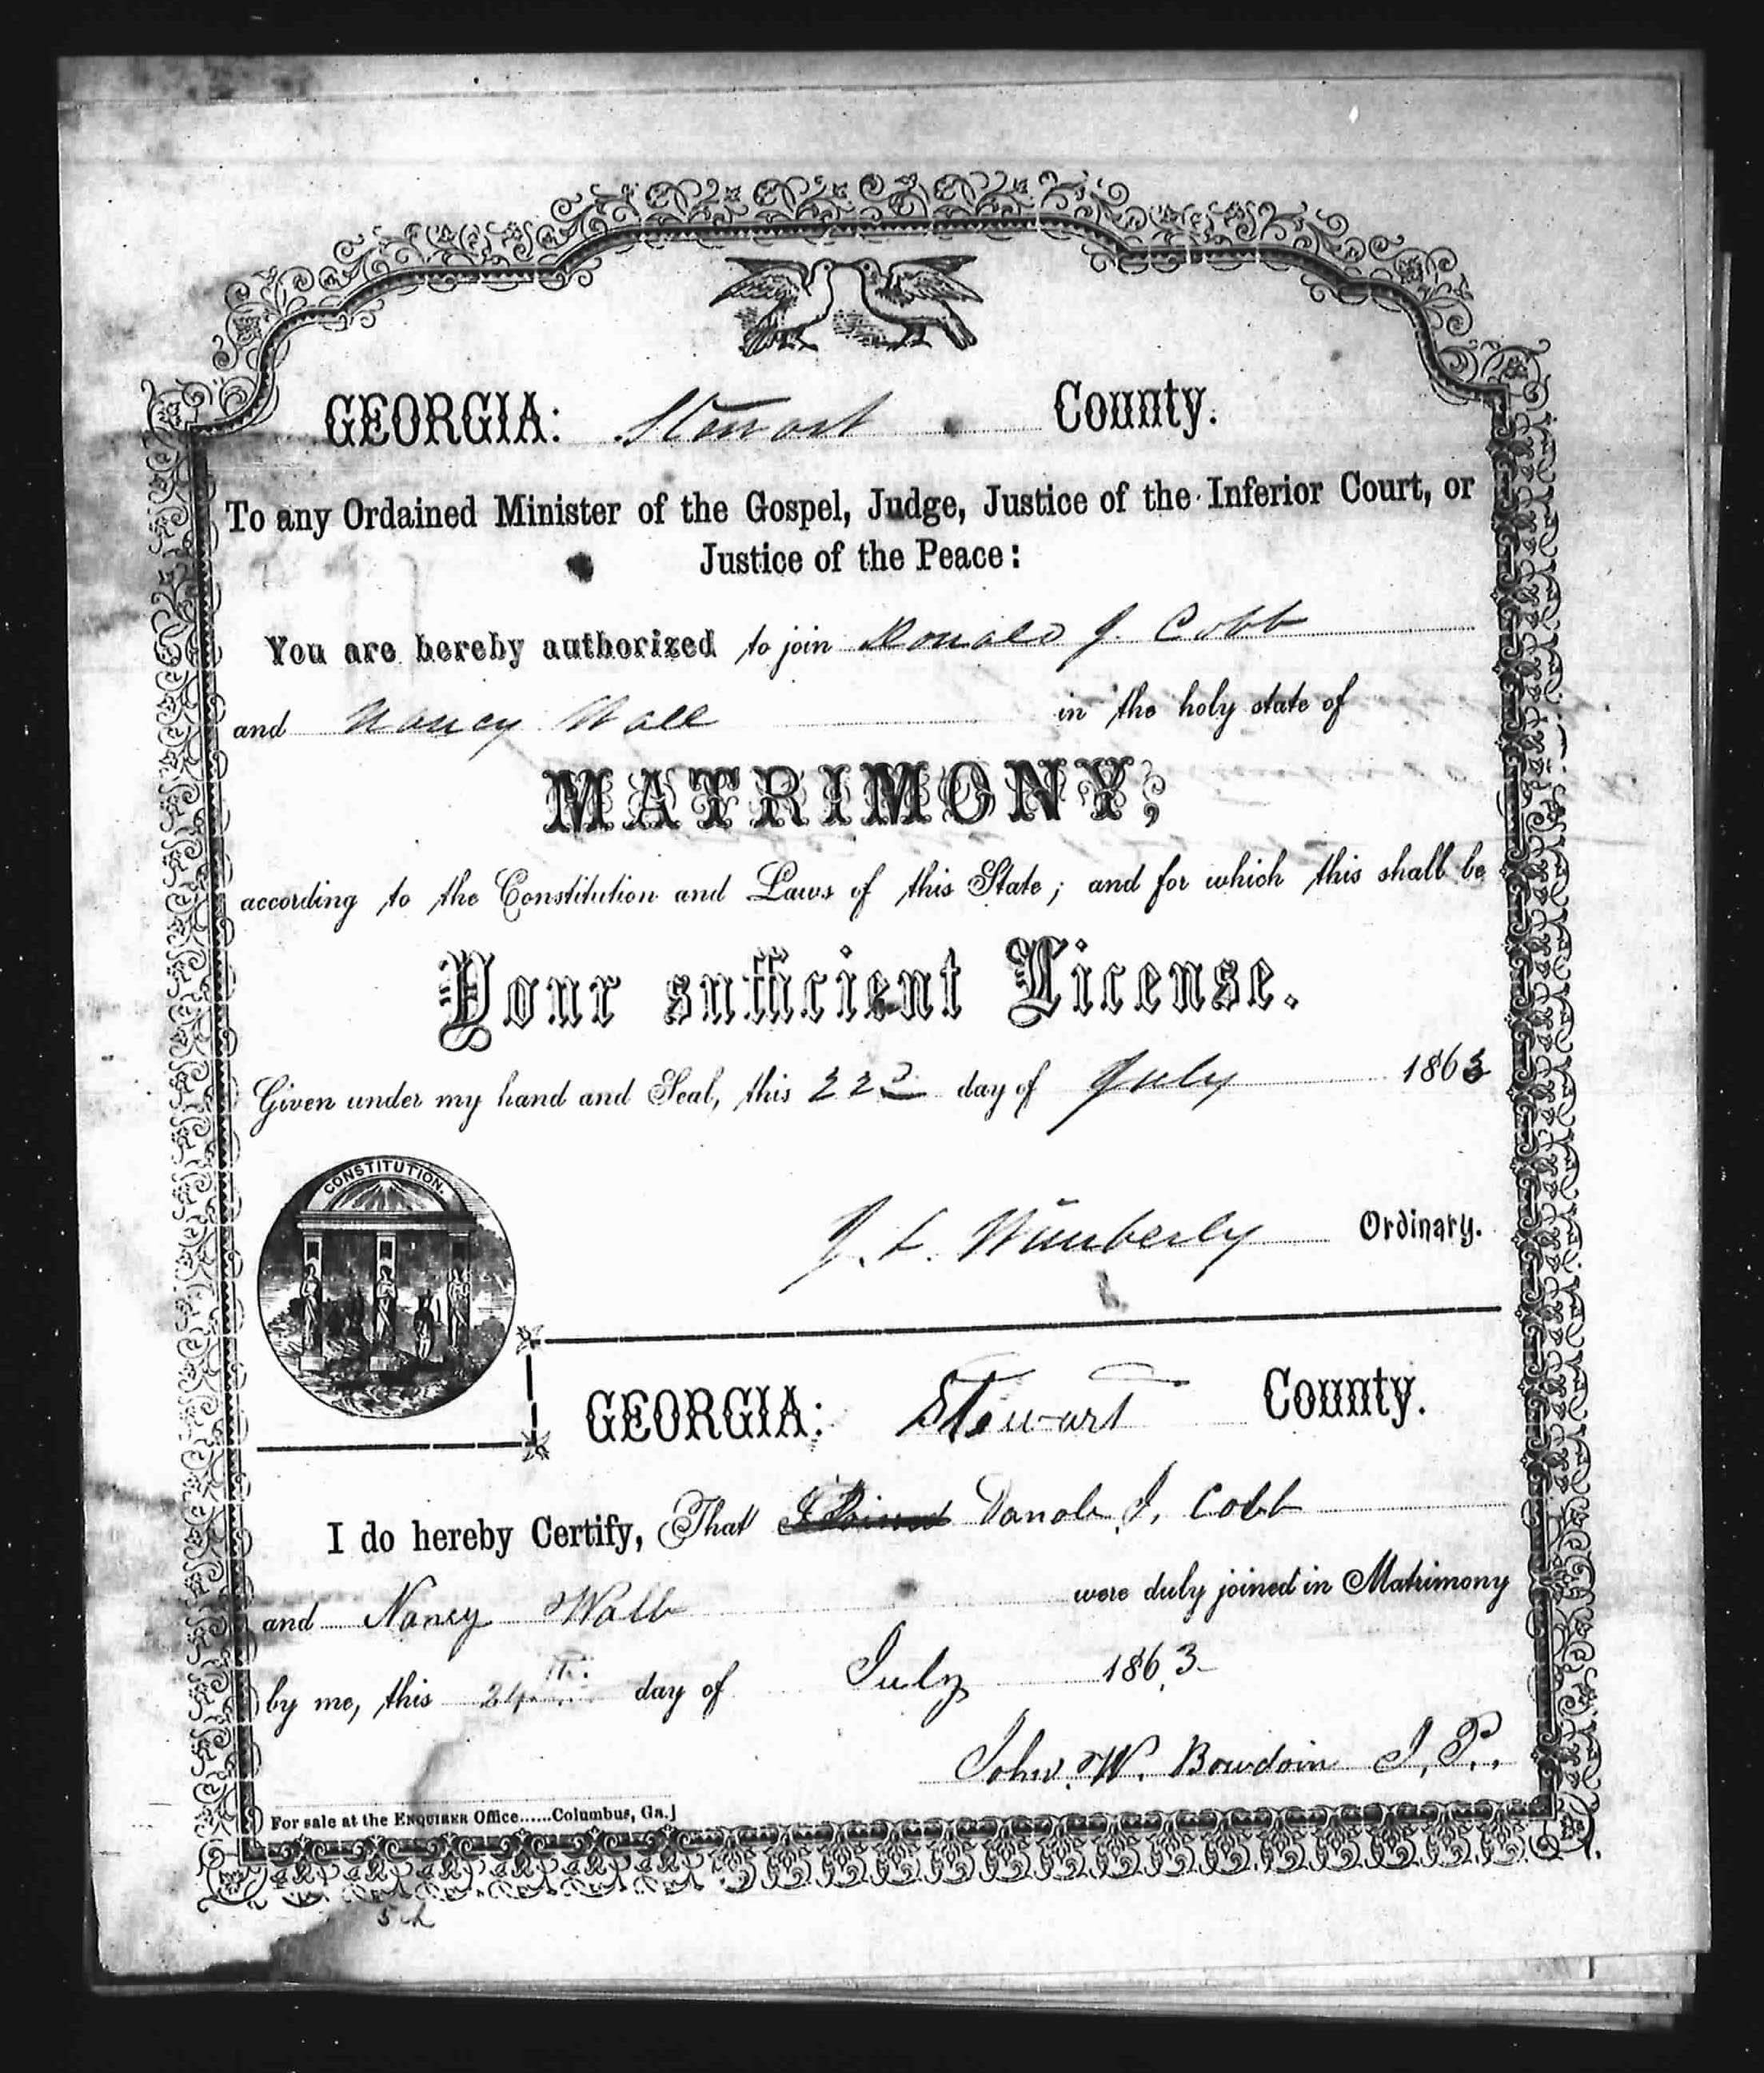 GEORGIA: Stewart County.
To any Ordained Minister of the Gospel, Judge, Justice of the Inferior Court, or
Justice of the Peace:
You are hereby authorized to join Donald J. Cobb
and Nancy Wall in the holy state of
MATRIMONY;
according to the Constitution and Laws of this State; and for which this shall be
Your sufficient License.
Given under my hand and Seal, this 22d day of July 1863
CONSTITUTION.
J. L. Wimberly Ordinary.
GEORGIA: Stewart County.
I do hereby Certify, That J. Cobb
and Nancy Wall were duly joined in Matrimony
by me, this 24th day of July 1863
John W. Bowdoin J. P.
For sale at the ENQUIRER Office......Columbus, Ga.]